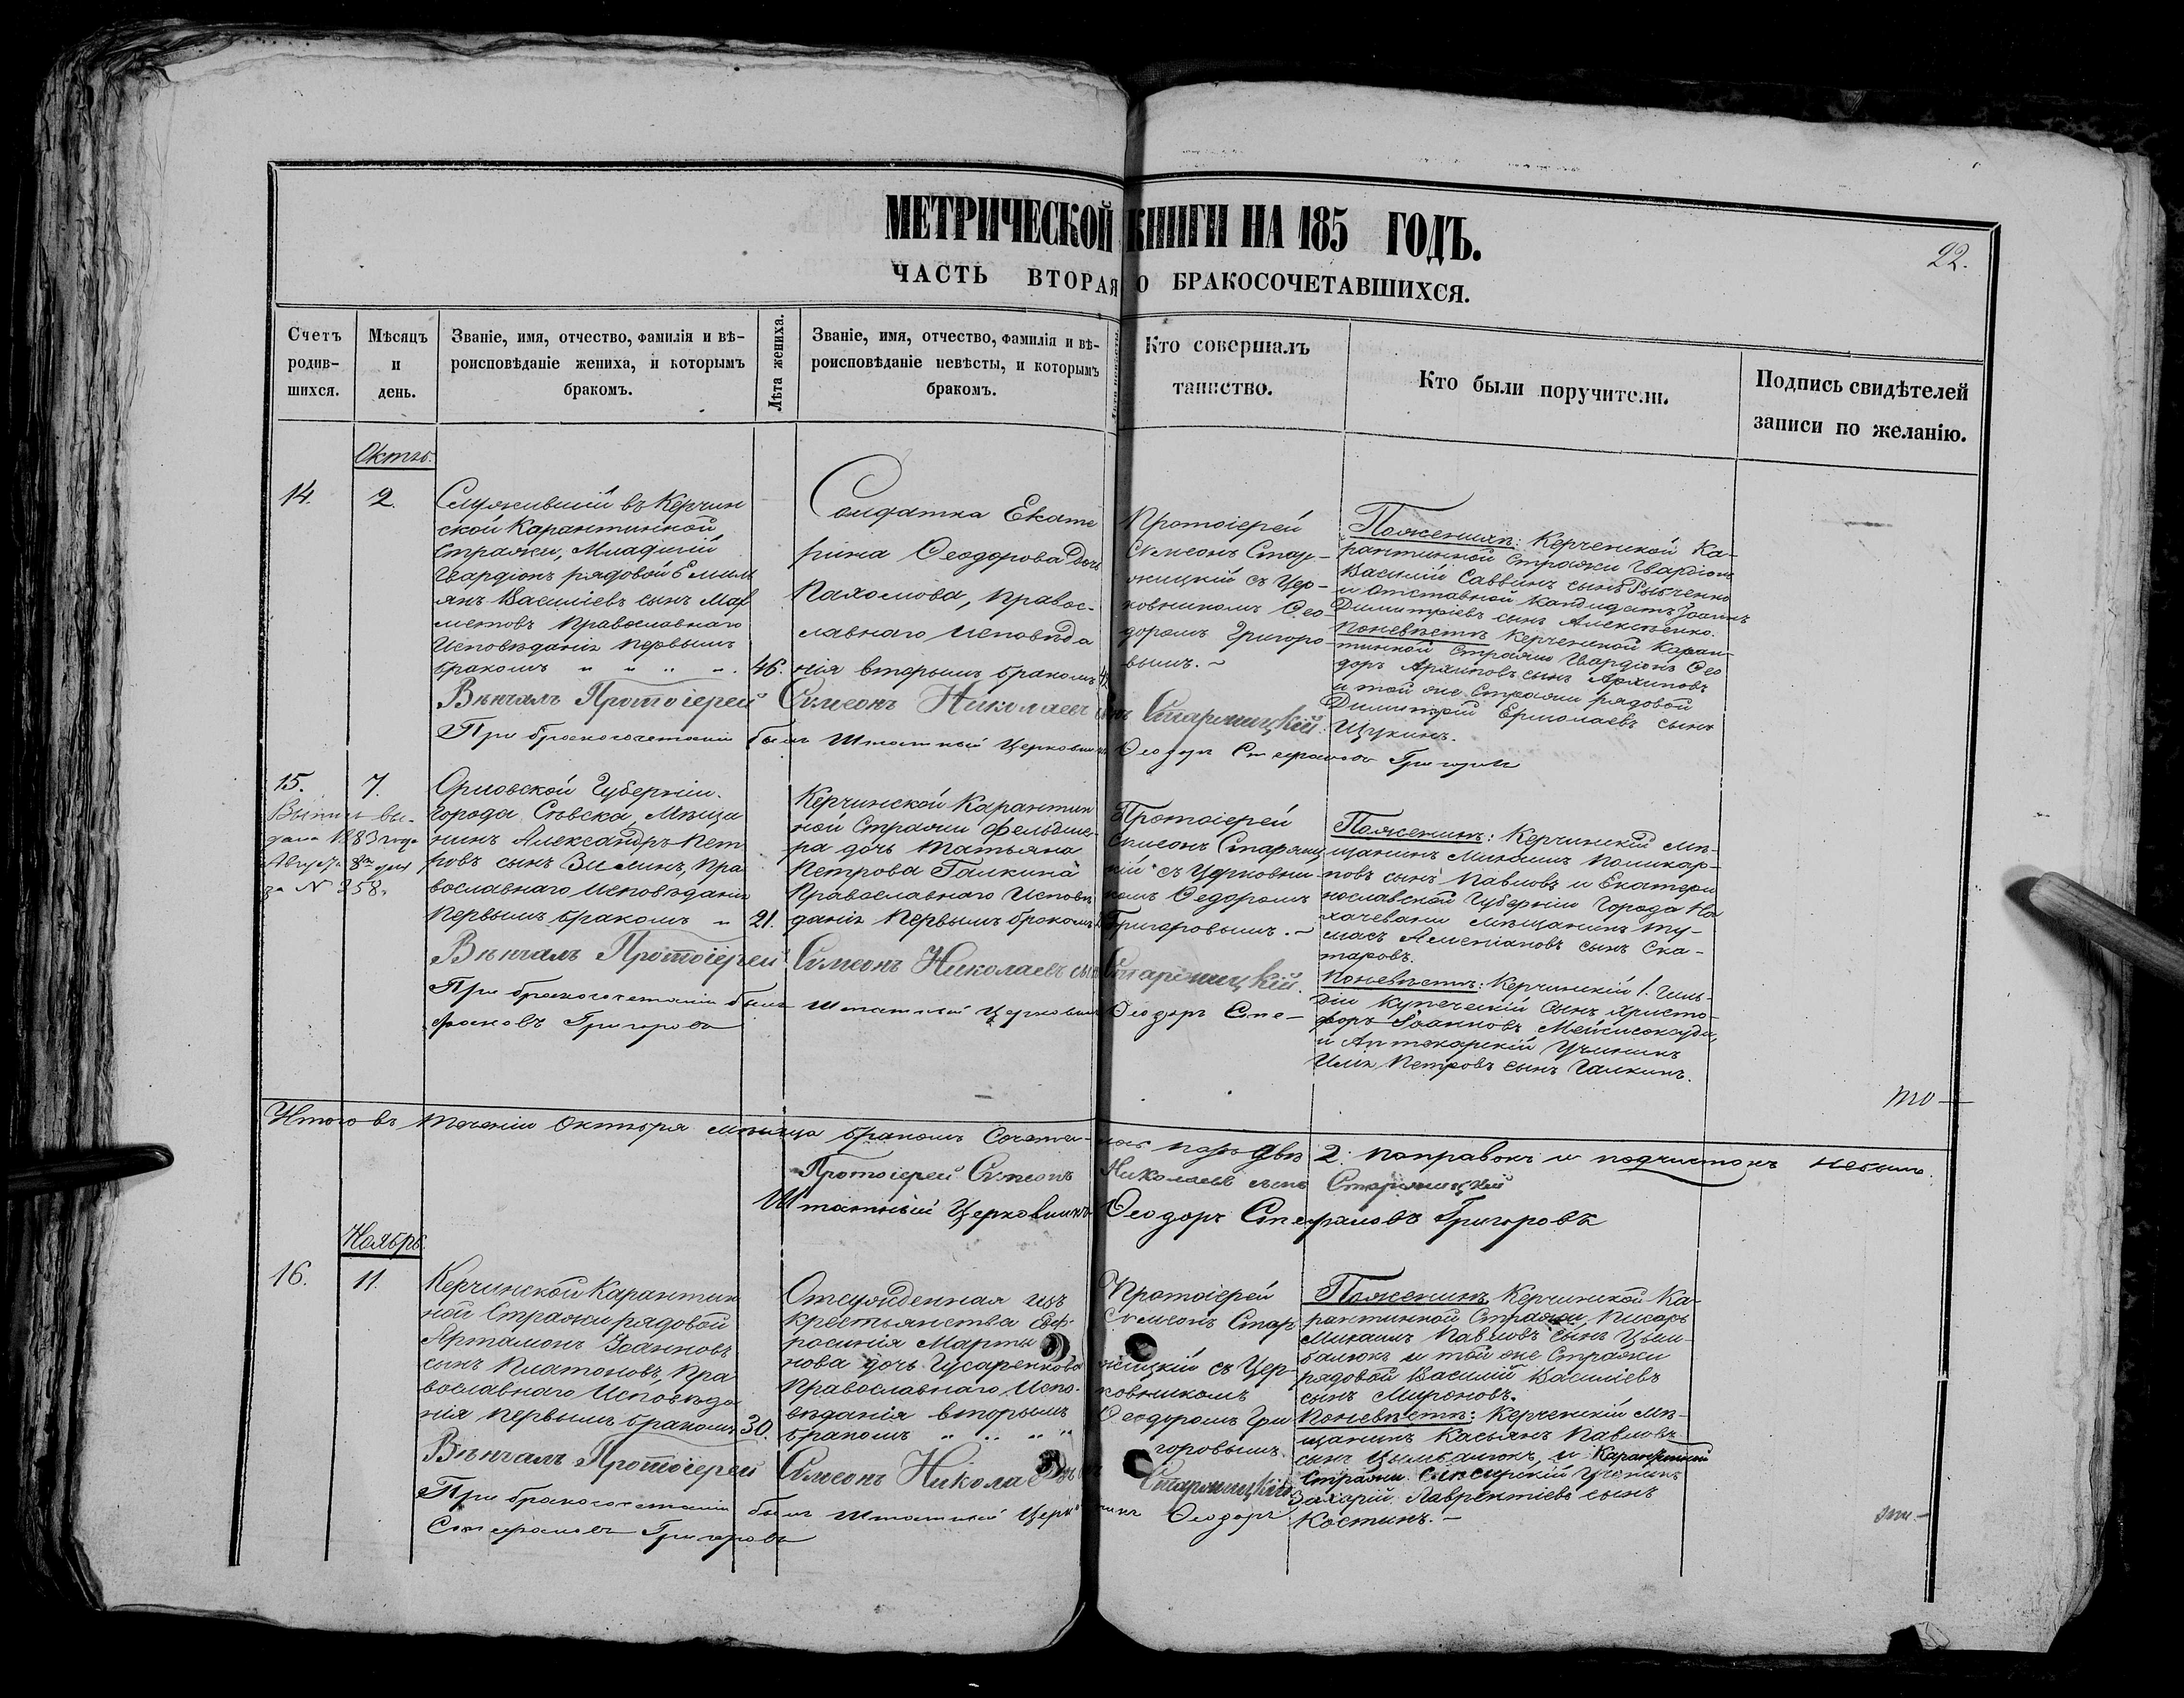 МЕТРИЧЕСКОЙ КНИГИ НА 185 ГОДЪ.
22.
ЧАСТЬ ВТОРАЯ О БРАКОСОЧЕТАВШИХСЯ.
Счетъ
родив-
шихся.
Мѣсяцъ
и
день.
Званіе, имя, отчество, фамилія и вѣ-
роисповѣданіе жениха, и которымъ
бракомъ.
Лѣта жениха.
Званіе, имя, отчество, фамилія и вѣ-
роисповѣданіе невѣсты, и которымъ
бракомъ.
Кто совершалъ
таинство.
Кто были поручители.
Подпись свидѣтелей
записи по желанію.
14.
2.
Служившій въ Керчин
ской Карантинной
Стражи, Младшій
Гвардіонъ рядовой Емиль
янъ Василіевъ сынъ
Православнаго
Исповѣданія первымъ
бракомъ
46.
Солдатка Екате
рина Ѳеодорова дочь
Пахомова, Правос-
лавнаго Исповѣда
нія вторымъ бракомъ
Протоіерей
Сѵмеонъ Стар-
жицкій съ Цер-
ковникомъ Ѳео
доромъ Григоро
вымъ.
По женихѣ: Керченской Ка-
рантинной Стражи Гвардіонъ
Василій Саввинъ сынъ Рыбченко
и Отставной Кандидатъ Іоаннъ
Димитріевъ сынъ Алексѣенко.
По невѣстѣ Керченской Каран-
тинной Стражи Гвардіонъ Ѳео
доръ Архиповъ сынъ Архиповъ
и той же Стражи рядовой
Димитрій Ермолаевъ сынъ
Щукинъ.
Вѣнчалъ Протоіерей Сѵмеонъ Николаевъ сынъ Старжицкій.
При бракосочетаніи былъ Штатный Церковникъ Ѳеодоръ Стефановъ Григоровъ
15.
7.
Выпись вы-
дана 1883 года
Августа 8го дня
за N 258.
Орловской Губерніи.
города Сѣвска, Мѣща
нинъ Александръ Пет
ровъ сынъ Зилинъ, Пра
вославнаго Исповѣданія
Первымъ бракомъ
21.
Керчинской Карантин
ной Стражи Фельдше-
ра дочь Татьяна
Петрова Галкина
Православнаго Исповѣ
данія Первымъ бракомъ
Протоіерей
Сѵмеонъ Старжиц
кій съ Церковни-
комъ Ѳедоромъ
Григоровымъ.
По женихѣ: Керчинскій Мѣ-
щанинъ Михаилъ Поликар-
повъ сынъ Павловъ и Екатери
нославской Губерніи Города На
хачевани Мѣщанинъ Ту-
масъ сынъ Ска-
таровъ.
По невѣстѣ: Керчинскій 1. Гиль-
діи Купеческій Сынъ Христо-
форъ Іоанновъ
и Аптекарскій Ученикъ
Илія Петровъ сынъ Галкинъ.
Вѣнчалъ Протоіерей Сѵмеонъ Николаевъ сынъ Старжицкій.
При бракосочетаніи былъ Штатный Церковникъ Ѳеодоръ Сте-
фановъ Григоровъ
Итого въ теченіи Октября мѣсяца бракомъ Сочета- лось паръ двѣ 2. поправокъ и подчистокъ небыло.
Протоіерей Сѵмеонъ Николаевъ сынъ Старжицкій
Штатный Церковникъ Ѳеодоръ Стефановъ Григоровъ
Ноябрь.
16.
11.
Керчинской Карантин
ной Стражи рядовой
Артамонъ Іоанновъ
сынъ Платоновъ, Пра
вославнаго Исповѣда
нія первымъ бракомъ
30.
Отсужденная изъ
крестьянства Евф-
росинія Марты
нова дочь Гусаренкова
Православнаго Испо-
вѣданія вторымъ
бракомъ
Протоіерей
Сѵмеонъ Стар
жицкій съ Цер-
ковникомъ
Ѳеодоромъ Гри
горовымъ.
По женихѣ Керчинской Ка-
рантинной Стражи, Писарь
Михаилъ Павловъ сынъ Цым-
балюкъ и той же Стражи
рядовой Василій Василіевъ
сынъ Мироновъ.
По невѣстѣ: Керченскій Мѣ-
щанинъ Касьянъ Павловъ
сынъ Цымбалюкъ, и Карантинной
Стражи Слесарскій Ученикъ
Захарій Лаврентіевъ сынъ
Костинъ.
Вѣнчалъ Протоіерей Сѵмеонъ Николаевъ Старжицкій
При бракосочетаніи былъ Штатный Церковникъ Ѳеодоръ
Стефановъ Григоровъ